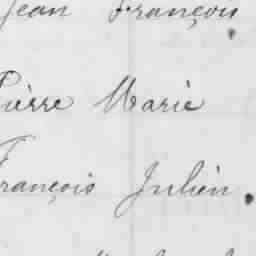 Jean François
Pierre Marie
François Julien